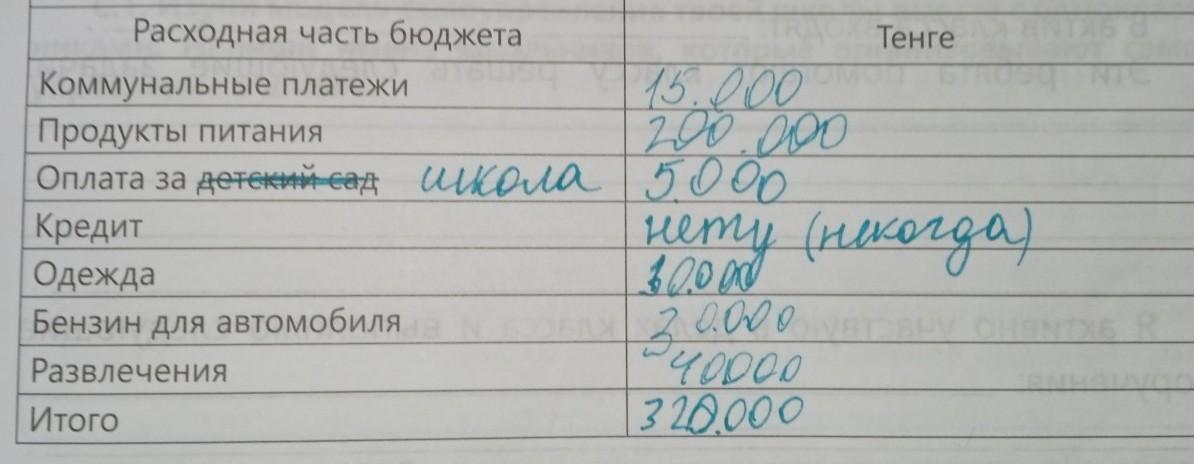 Расходная часть бюджета Тенге
Коммунальные платежи 15.000
Продукты питания 200.000
Оплата за детский сад школа 5.000
Кредит нету (некогда)
Одежда 10.000
Бензин для автомобиля 30.000
Развлечения 40000
Итого 320.000